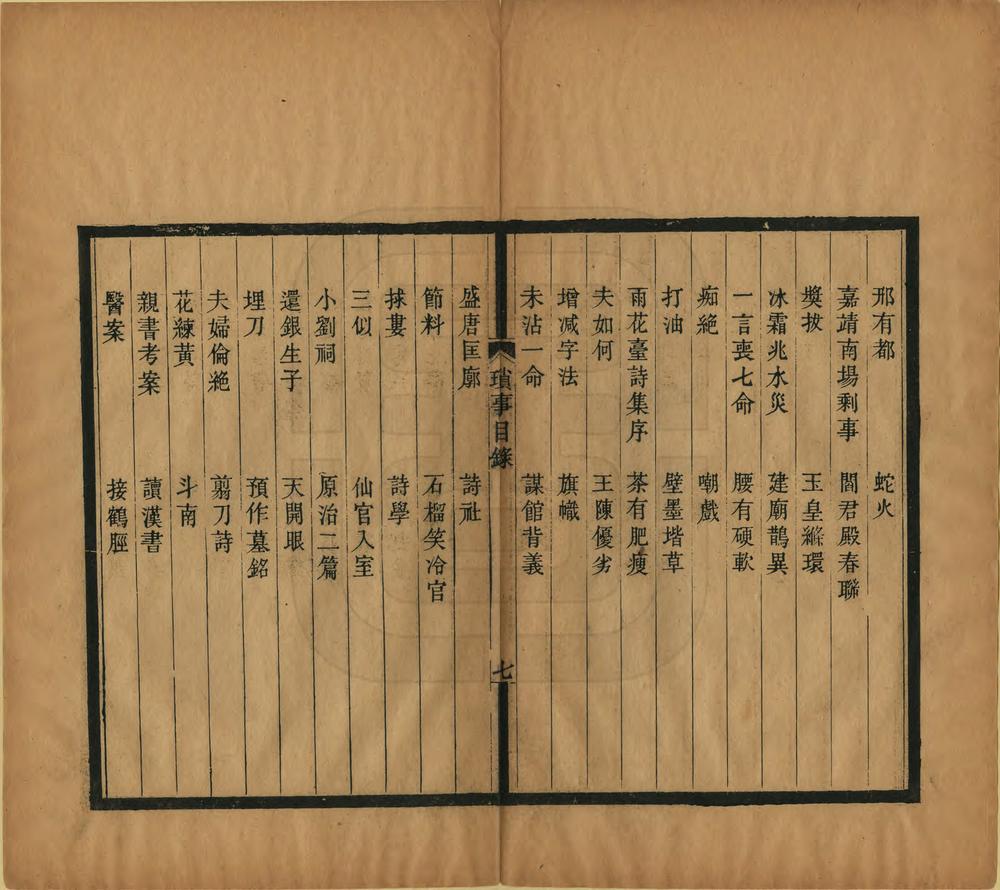 邢有都 蛇火
嘉靖南場剩事 閻君殿春聯
獎拔 玉皇縧環
冰霜兆水災 建廟鵲異
一言喪七命 腰有硬軟
痴絶 嘲戲
打油 壁墨堦草
雨花臺詩集序 茶有肥瘦
夫如何 王陳優劣
增减字法 旗幟
未沾一命 謀館背義
瑣事目錄 七
盛唐匡廓 詩社
節料 石榴笑冷官
捄婁 詩學
三似 仙官入室
小劉祠 原治二篇
還銀生子 天開眼
埋刀 預作墓銘
夫婦倫絶 翦刀詩
花練黃 斗南
親書考案 讀漢書
醫案 接鶴脛